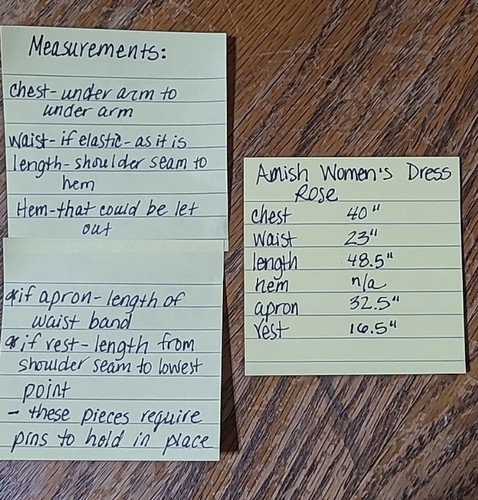 Measurements:
chest - under arm to
under arm
waist - if elastic - as it is
length - shoulder seam to
hem
Hem - that could be let
out
*if apron - length of
waist band
*if vest - length from
shoulder seam to lowest
point
- these pieces require
pins to hold in place
Amish Women's Dress
Rose
chest 40"
waist 23"
length 48.5"
hem n/a
apron 32.5"
vest 16.5"